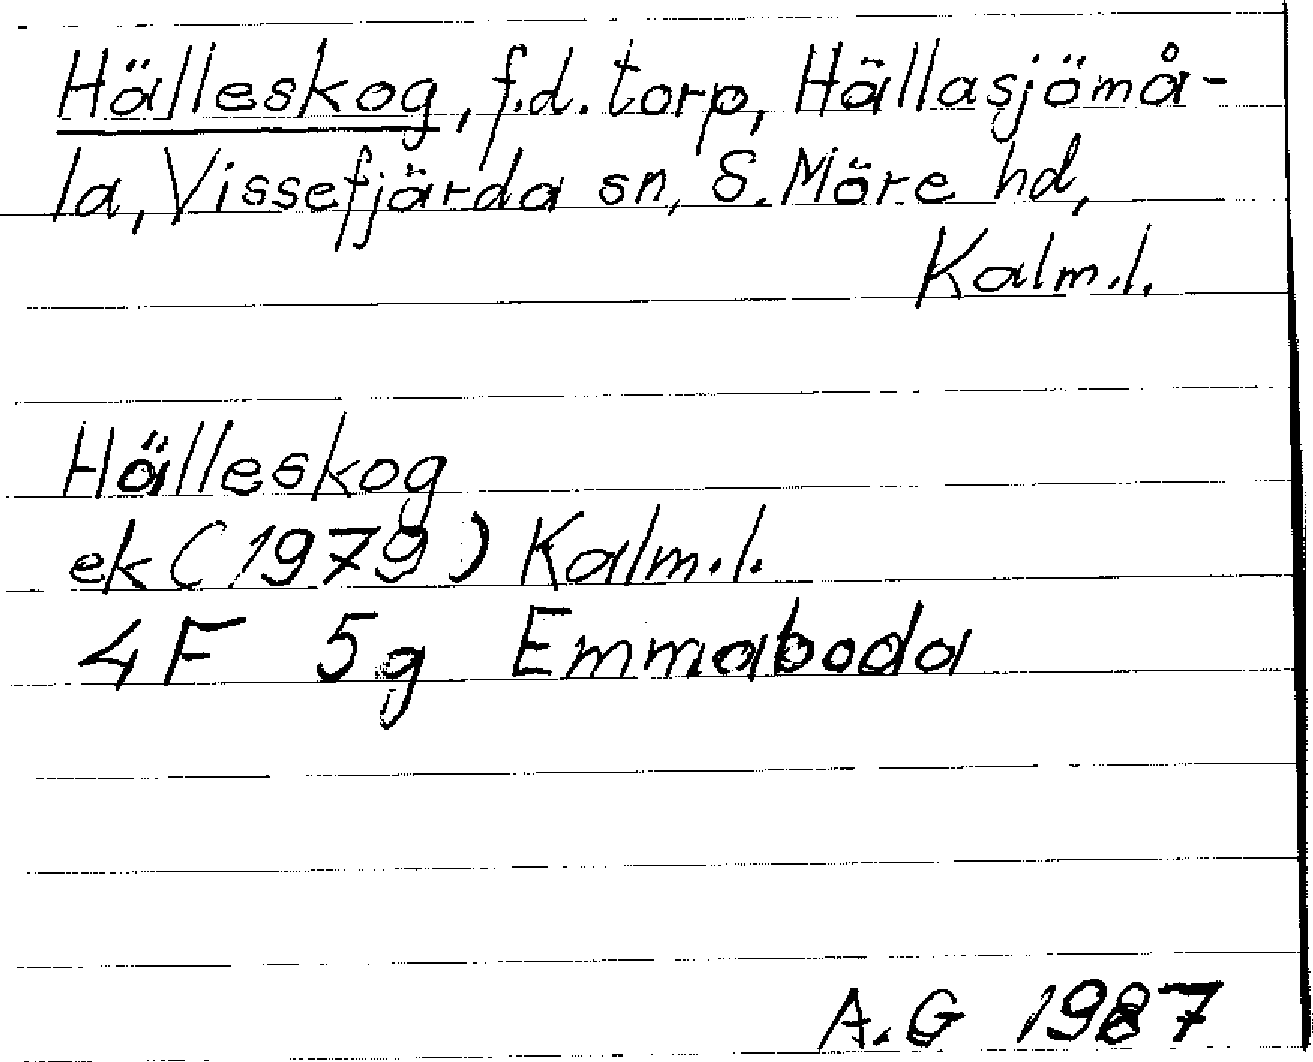 Hälleskog, f.d. torp, Hällasjömå-
la, Vissefjärda sn, S. Möre hd,
Kalm.l.
Hälleskog
ek (1979) Kalm.l.
4F 5g Emmaboda
A.G 1987